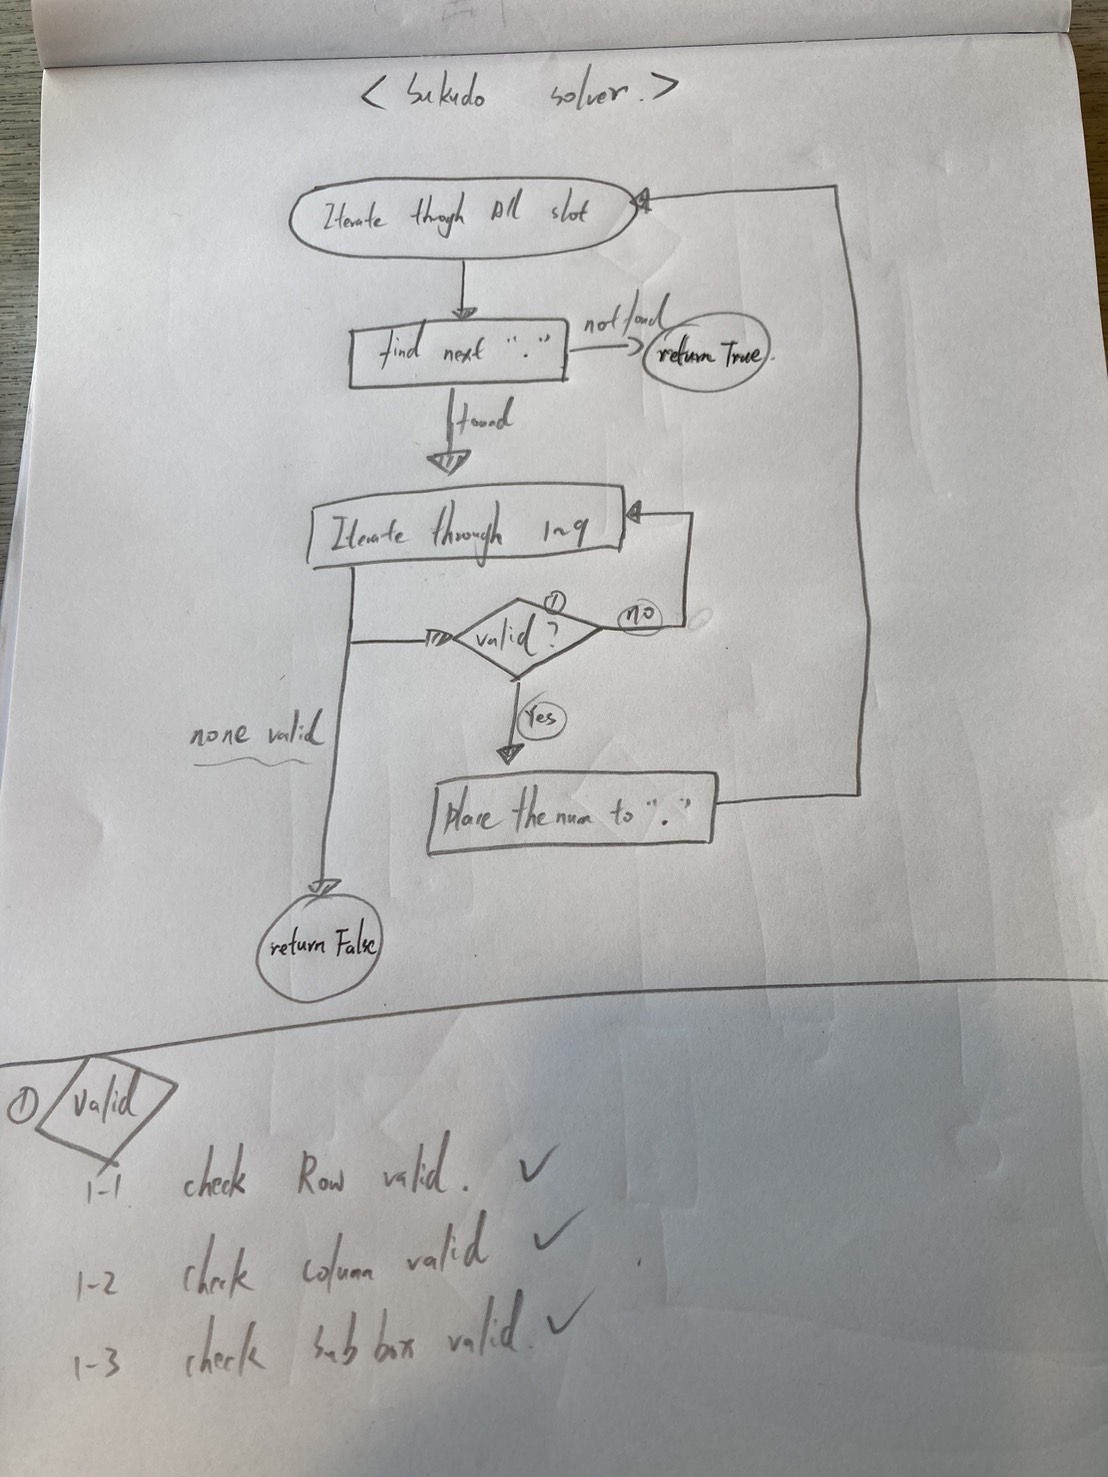 < Sukudo solver. >
Iterate throgh All slot
find next "."
not found
return True.
found
Iterate through 1~9
①
valid?
no
none valid
Yes
Place the num to "."
return False
① valid
1-1 check Row valid. ✓
1-2 check column valid ✓
1-3 check sub box valid. ✓